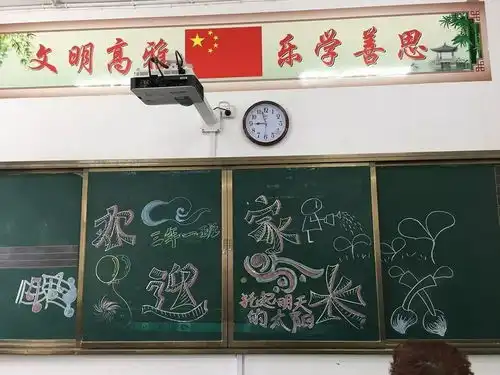 文明高雅 乐学善思
欢迎
家长
托起明天
的太阳